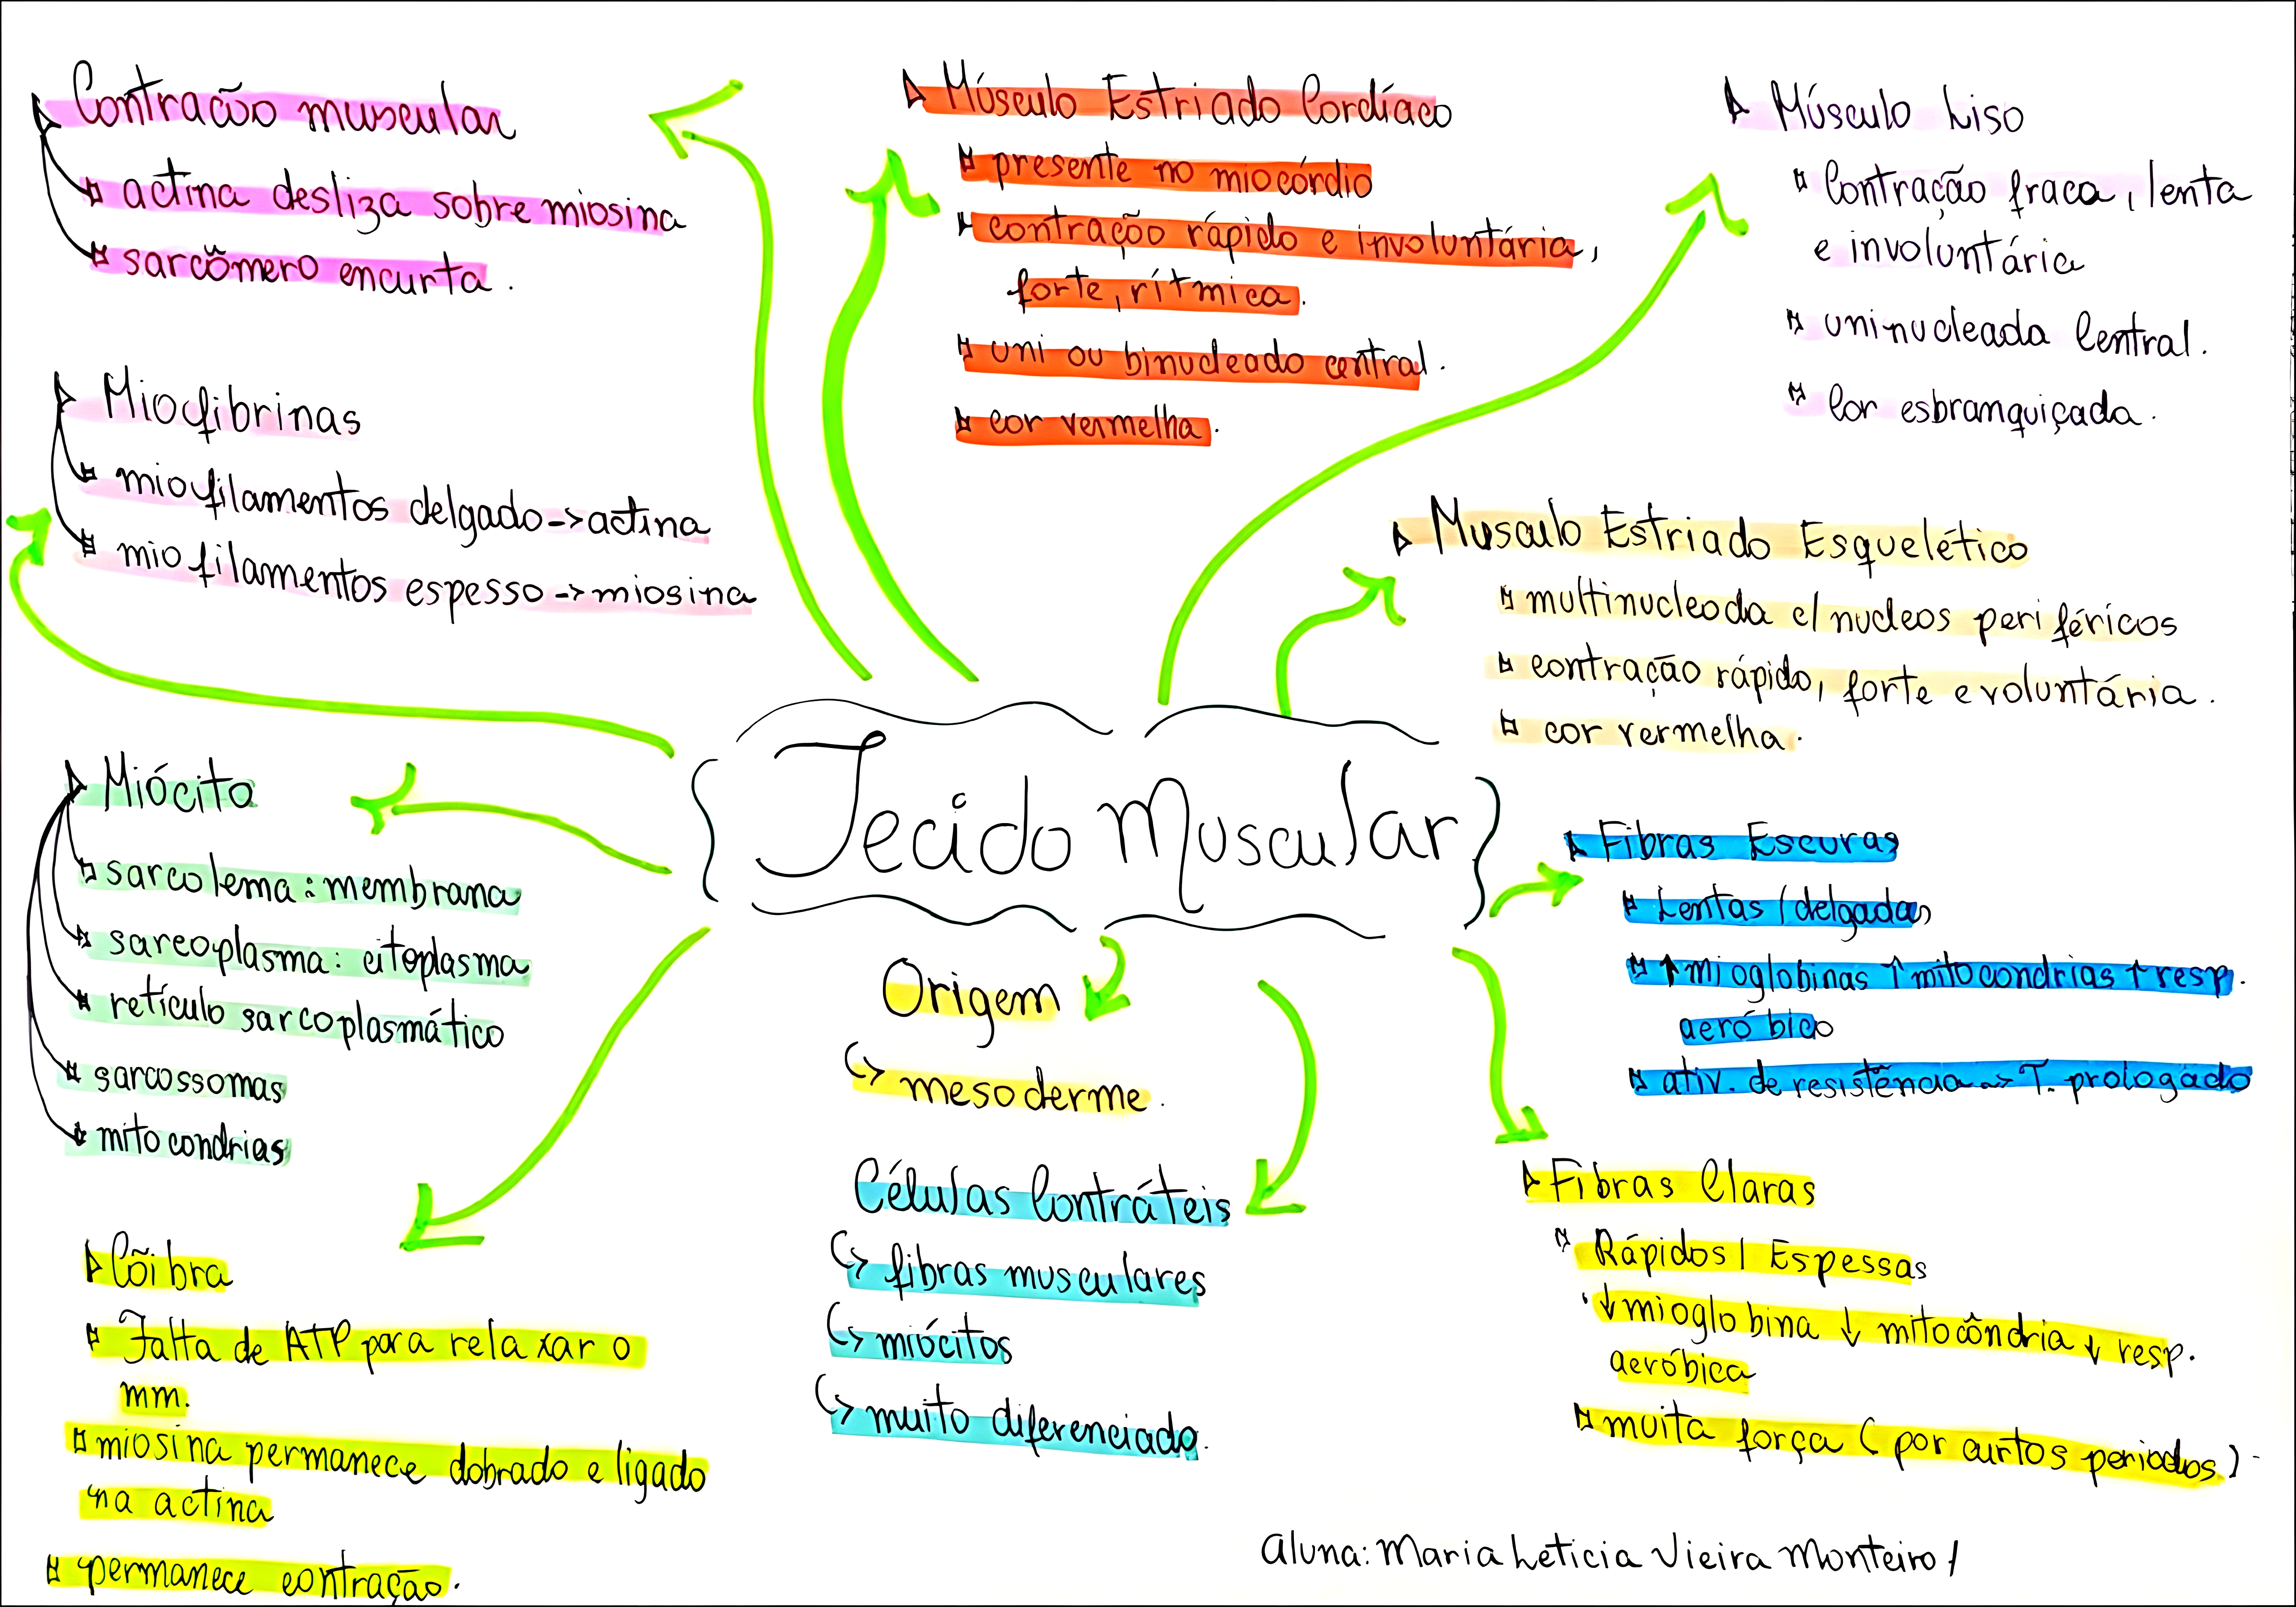 Contração muscular
actina desliza sobre miosina
sarcômero encurta.
Miofibrinas
miofilamentos delgado->actina
miofilamentos espesso->miosina
Miócito
sarcolema: membrana
sarcoplasma: citoplasma
retículo sarcoplasmático
sarcossomas
mitocondrias
Cõibra
Falta de ATP para relaxar o
mm.
miosina permanece dobrado e ligado
na actina
permanece contração.
Músculo Estriado Cardíaco
presente no miocórdio
contração rápido e involuntária,
forte, rítmica.
uni ou binucleado central.
cor vermelha.
Tecido Muscular
Origem
mesoderme.
Células Contráteis
fibras musculares
miócitos
muito diferenciada.
Músculo Liso
Contração fraca, lenta
e involuntária
uninucleada Central.
Cor esbranquiçada.
Musculo Estriado Esquelético
multinucleada c/ nucleos periféricos
contração rápido, forte e voluntária.
cor vermelha.
Fibras Escuras
Lentas / delgadas
↑mioglobinas ↑mitocondrias ↑resp.
aeróbico
ativ. de resistência -> T. prologado
Fibras Claras
Rápidos / Espessas
↓mioglobina ↓ mitocôndria ↓ resp.
aeróbica
muita força (por curtos periodos).
Aluna: Maria Leticia Vieira Monteiro /